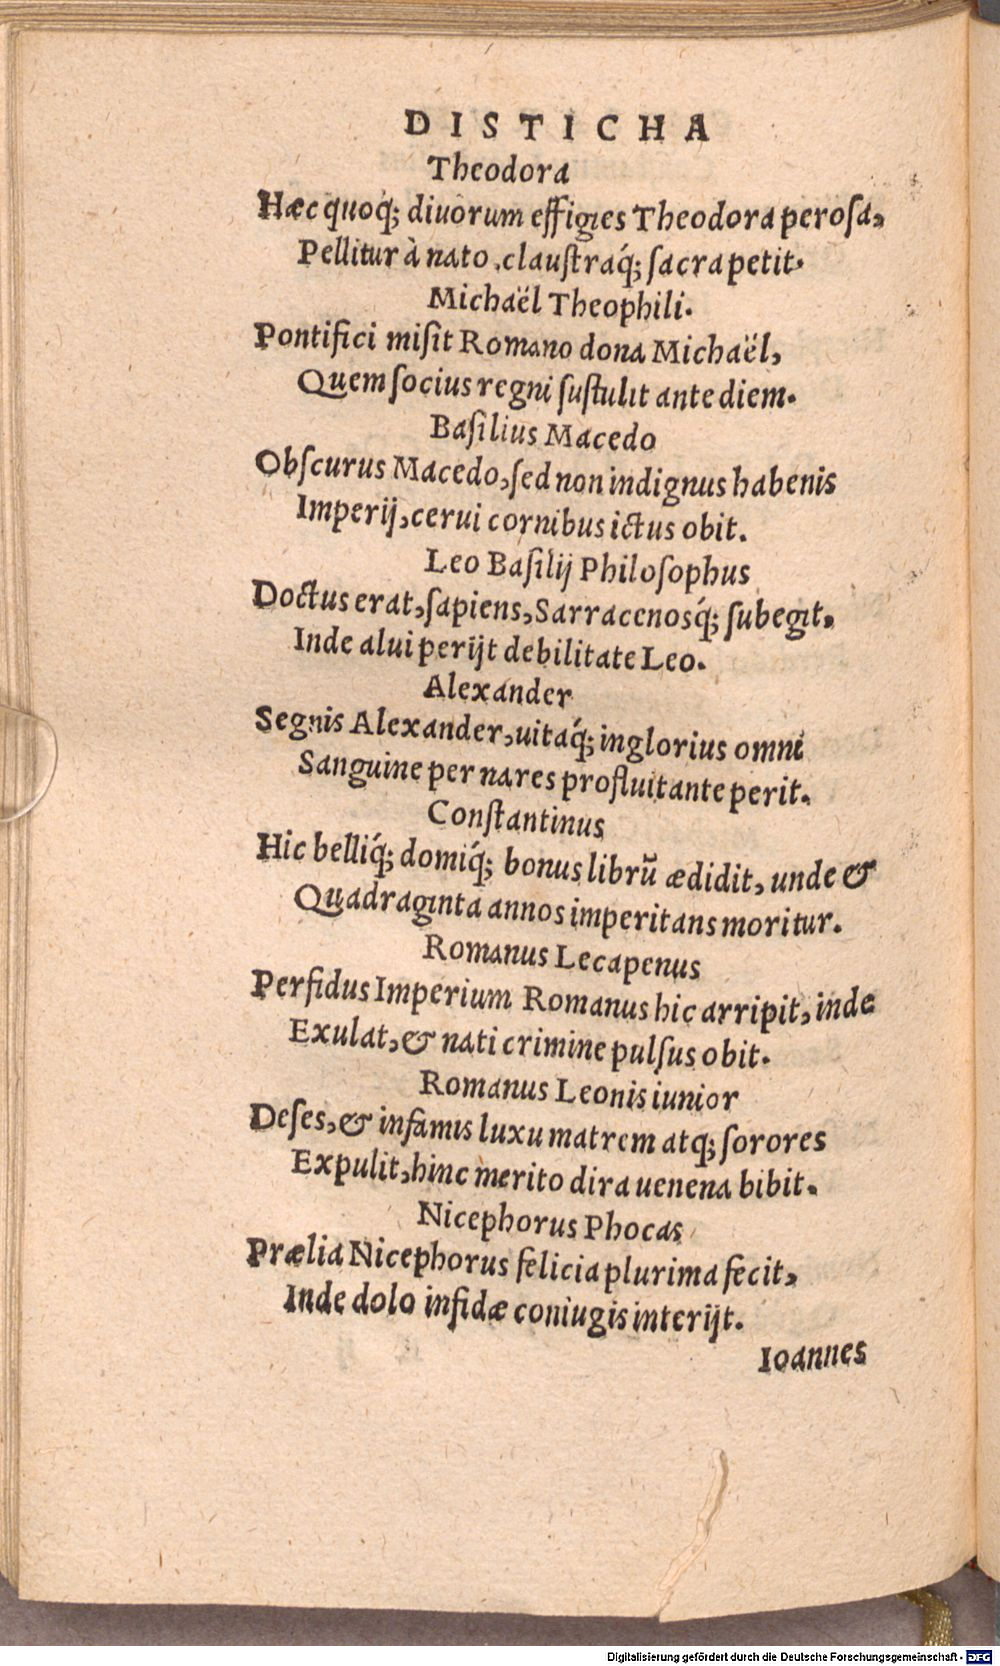 DISTICHA
Theodora
Hæc quoq́; diuorum effigies Theodora perosa,
Pellitur à nato, claustraq́; sacra petit.
Michaël Theophili.
Pontifici misit Romano dona Michaël,
Quem socius regni sustulit ante diem.
Basilius Macedo
Obscurus Macedo, sed non indignus habenis
Imperij, cerui cornibus ictus obit.
Leo Basilij Philosophus
Doctus erat, sapiens, Sarracenosq́; subegit,
Inde alui perijt debilitate Leo.
Alexander
Segnis Alexander, uitaq́; inglorius omni
Sanguine per nares profluitante perit.
Constantinus
Hic belliq́; domiq́; bonus librũ ædidit, unde &
Quadraginta annos imperitans moritur.
Romanus Lecapenus
Perfidus Imperium Romanus hic arripit, inde
Exulat, & nati crimine pulsus obit.
Romanus Leonis iunior
Deses, & infamis luxu matrem atq; sorores
Expulit, hinc merito dira uenena bibit.
Nicephorus Phocas
Prælia Nicephorus felicia plurima fecit,
Inde dolo infidæ coniugis interijt.
Ioannes
Digitalisierung gefördert durch die Deutsche Forschungsgemeinschaft - DFG